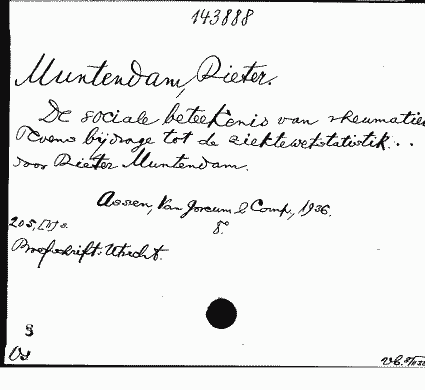 143888
Muntendam, Pieter.
De sociale beteekenis van rheumatie
Tevens bijdrage tot de ziektewetstatistik...
door Pieter Muntendam.
Assen, Van Gorcum & Comp., 1936.
205, [1] s. 8°
Proefschrift: Utrecht.
8